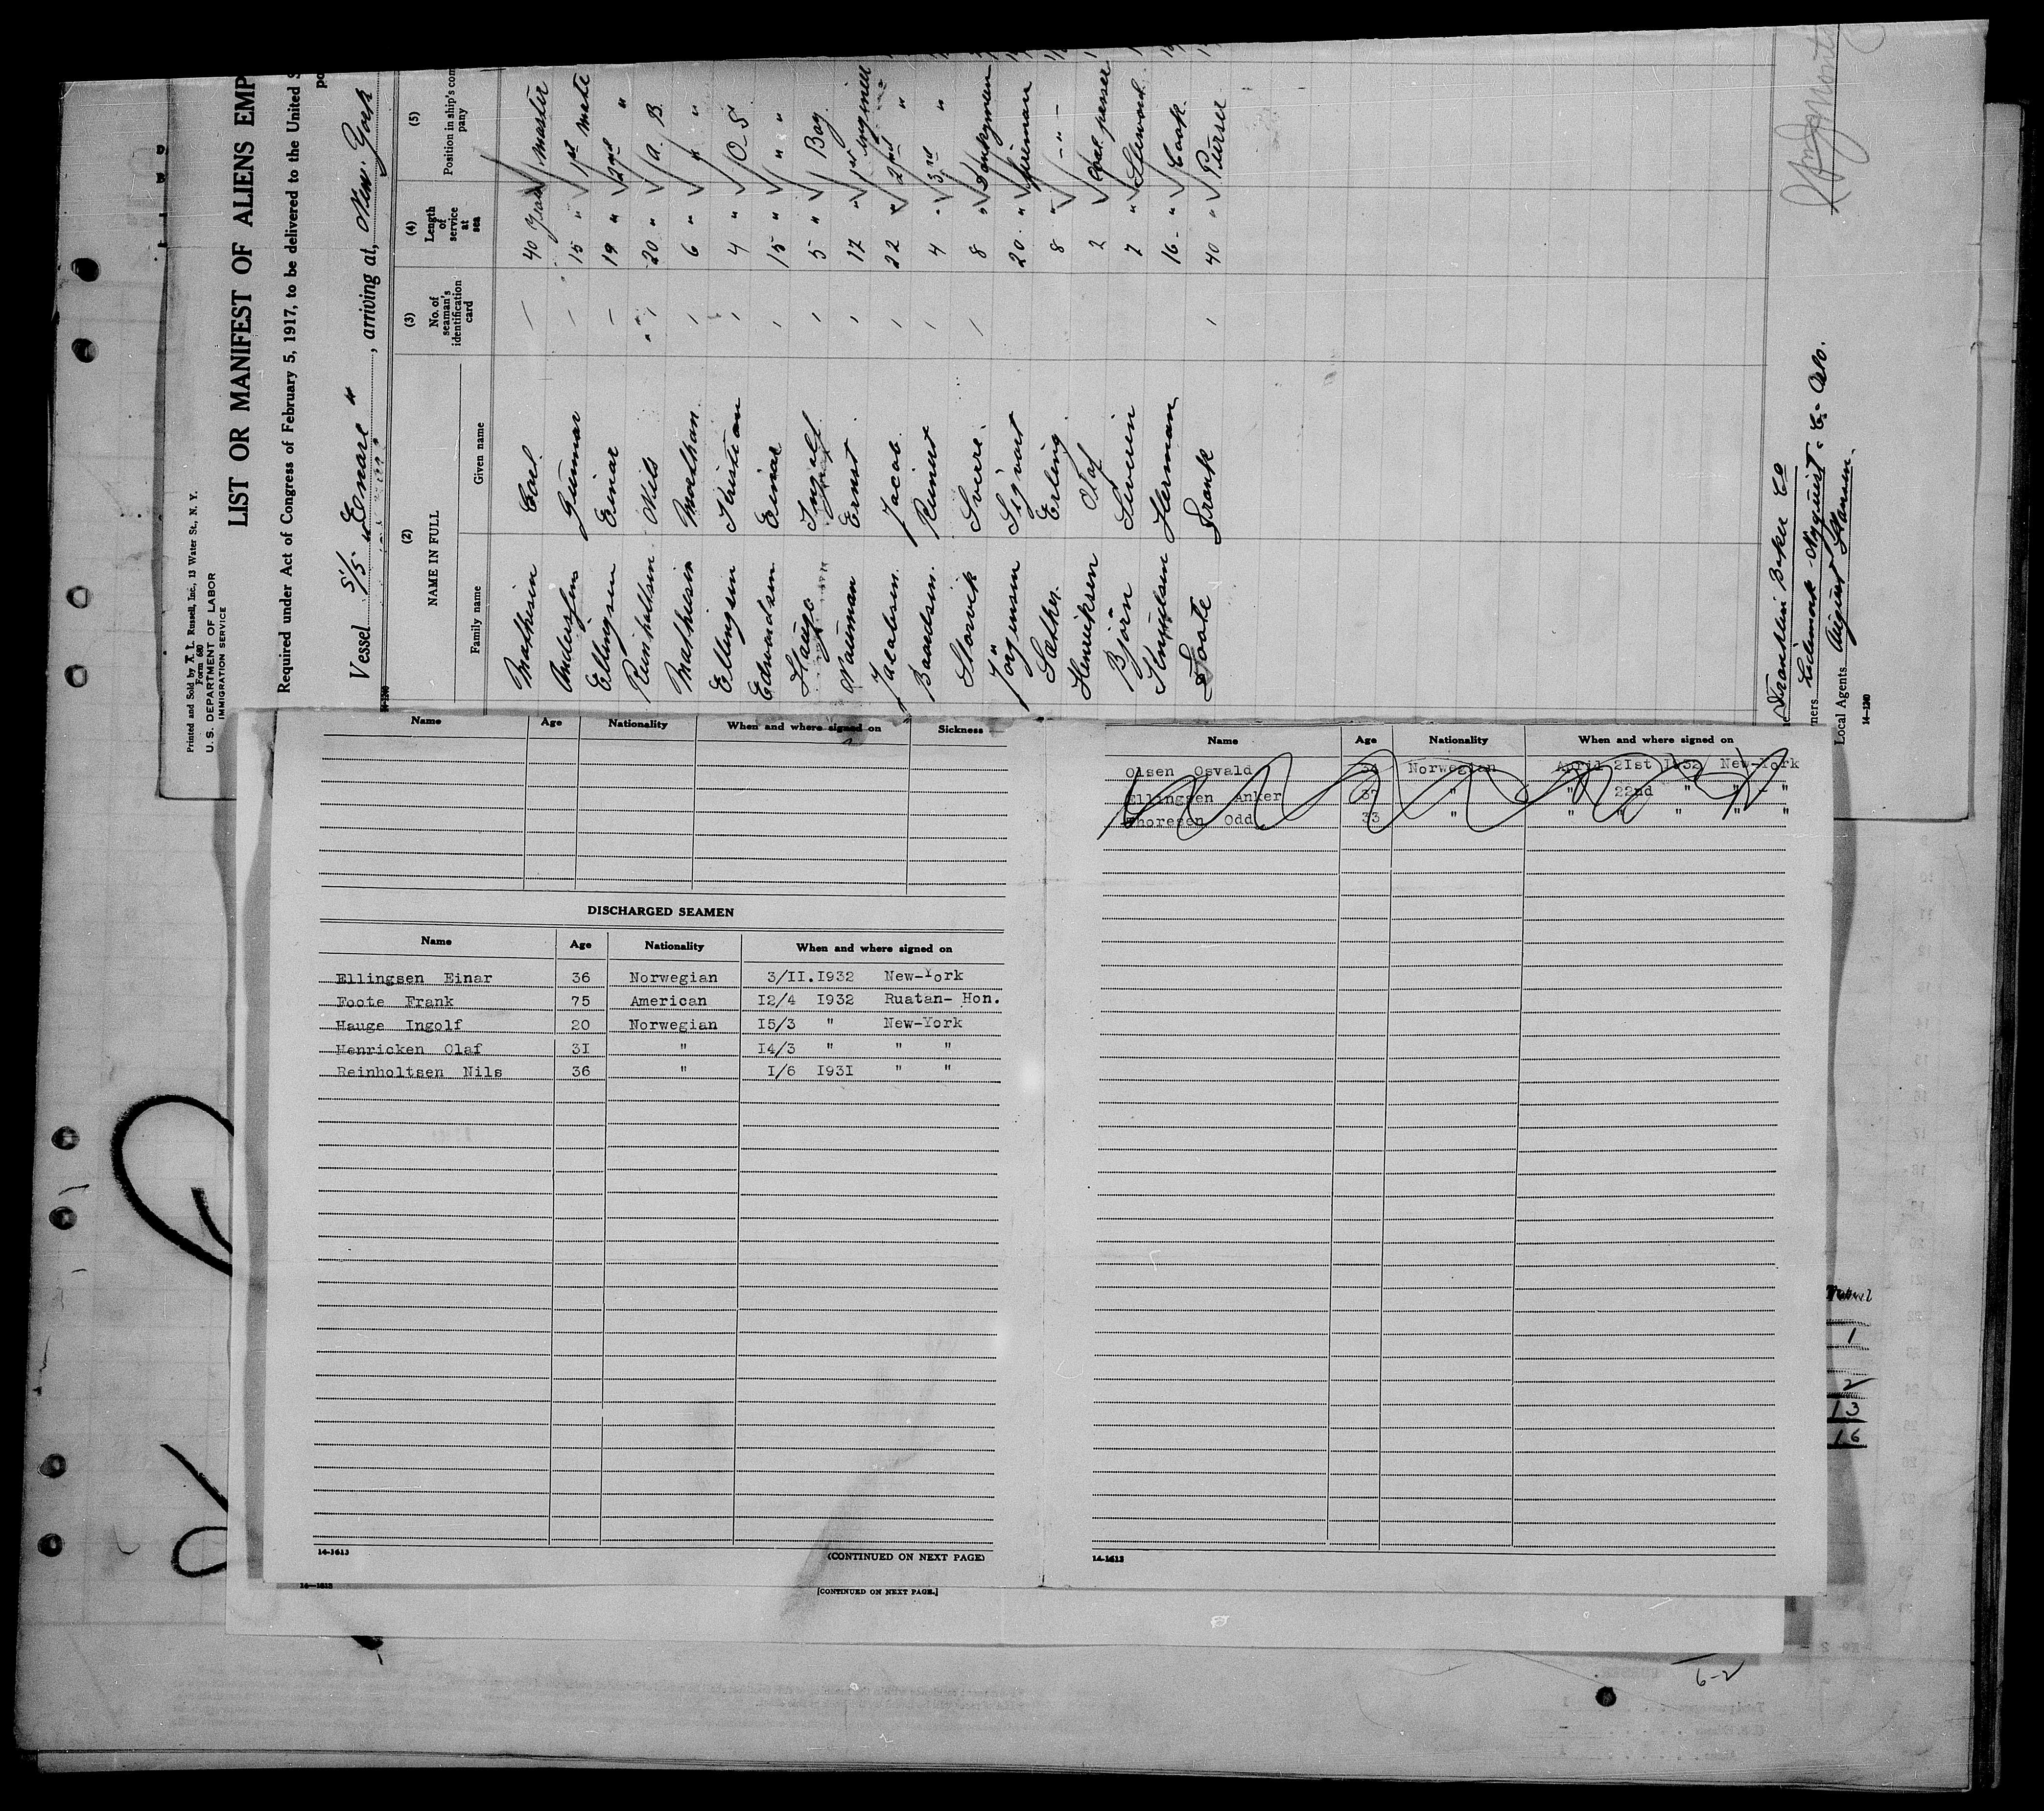 Printed and Sold by A. L. Russell, Inc., 13 Water St., N. Y.
Form 680
U. S. DEPARTMENT OF LABOR
IMMIGRATION SERVICE
LIST OR MANIFEST OF ALIENS EMP
Required under Act of Congress of February 5, 1917, to be delivered to the United S
Vessel S/S , arriving at, New York
(2) (3) (4) (5)
NAME IN FULL No. of seaman's identification card Length of service at sea Position in ship's com pany
Family name Given name
Mathisen Carl — 40 years Master
Anderssen Gunnar — 15 " 1st Mate
Ellingsen Einar — 19 " 2nd "
Reinholtsen Nils — 20 " A. B.
Mathisen — 6 " " "
Ellingsen Kristian — 4 " O S
Edwardsen Einar — 15 " " "
Hauge Ingolf — 5 " Boy
Nauman Ernst — 17 " 1st Engineer
Jacobsen Jacob — 22 " 2nd "
Baardsen Reinert — 4 " 3rd "
Storvik Sverre — 8 " Donkeyman
Jörgensen Sigvart 20 " Fireman
Sæther Erling 8 " - " -
Henriksen Olaf 2 Coal passer
Björn Severin 7 " Steward
Knudsen Herman 16 - " Cook
Foote Frank — 40 " Purser
Franklin Baker Co
Local Agents August
14-1240
Name Age Nationality When and where signed on Sickness
DISCHARGED SEAMEN
Name Age Nationality When and where signed on
Ellingsen Einar 36 Norwegian 3/II.I932 New-York
Foote Frank 75 American I2/4 I932 Ruatan- Hon.
Hauge Ingolf 20 Norwegian I5/3 " New-York
Henricken Olaf 3I " I4/3 " " "
Reinholtsen Nils 36 " I/6 I93I " "
14-1613
(CONTINUED ON NEXT PAGE)
14—1613
[CONTINUED ON NEXT PAGE.]
Name Age Nationality When and where signed on
Olsen Osvald 34 Norwegian April 2Ist I932 New-York
Ellingsen Anker 37 " " 22nd " " - "
Thoresen Odd 33 " " " " " "
14-1613
1
2
13
16
6-2